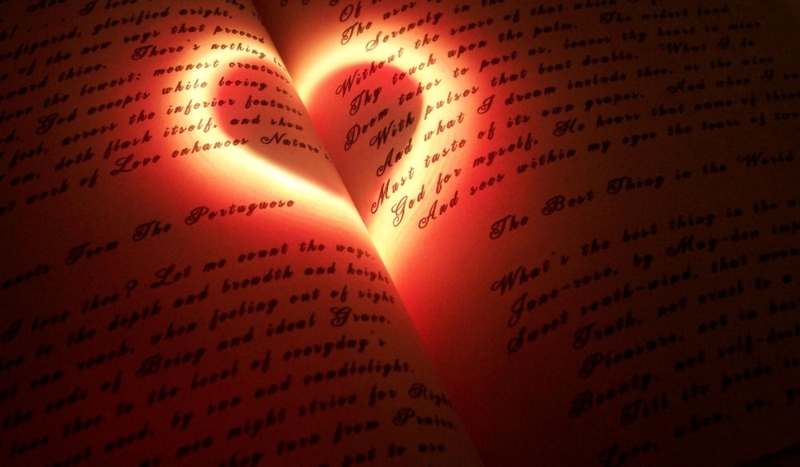 And when, I say at need, I
figured, glorified aright,
of the new rays that proceed
ward thine. There's nothing lo
the lowest: meanest creatures
God accepts while loving
feel, across the inferior features
doth flash itself, and show
work of Love enhances Nature's
From The Portuguese
I love thee? Let me count the ways.
to the depth and breadth and height
can reach, when feeling out of sight
ends of Being and ideal Grace.
love thee to the level of everyday's
need, by sun and candlelight.
men might strive for
they turn from Praise
put to use
Of
The
Serenely in the
Without the sense of that which
Thy touch upon the palm. The widest land
Doom takes to part us, leaves thy heart in mine
With pulses that beat double. What I do
And what I dream include thee, as the wine
Must taste of its own grapes. And when I
God for myself, He hears that name of thine
And sees within my eyes the tears of two
The Best Thing in the World
What's the best thing in the
June-rose, by May-dew
Sweet south-wind, that means
Truth, not cruel to a
Pleasure, not in
Beauty, not self-deck
Till its pride is
Love, when,